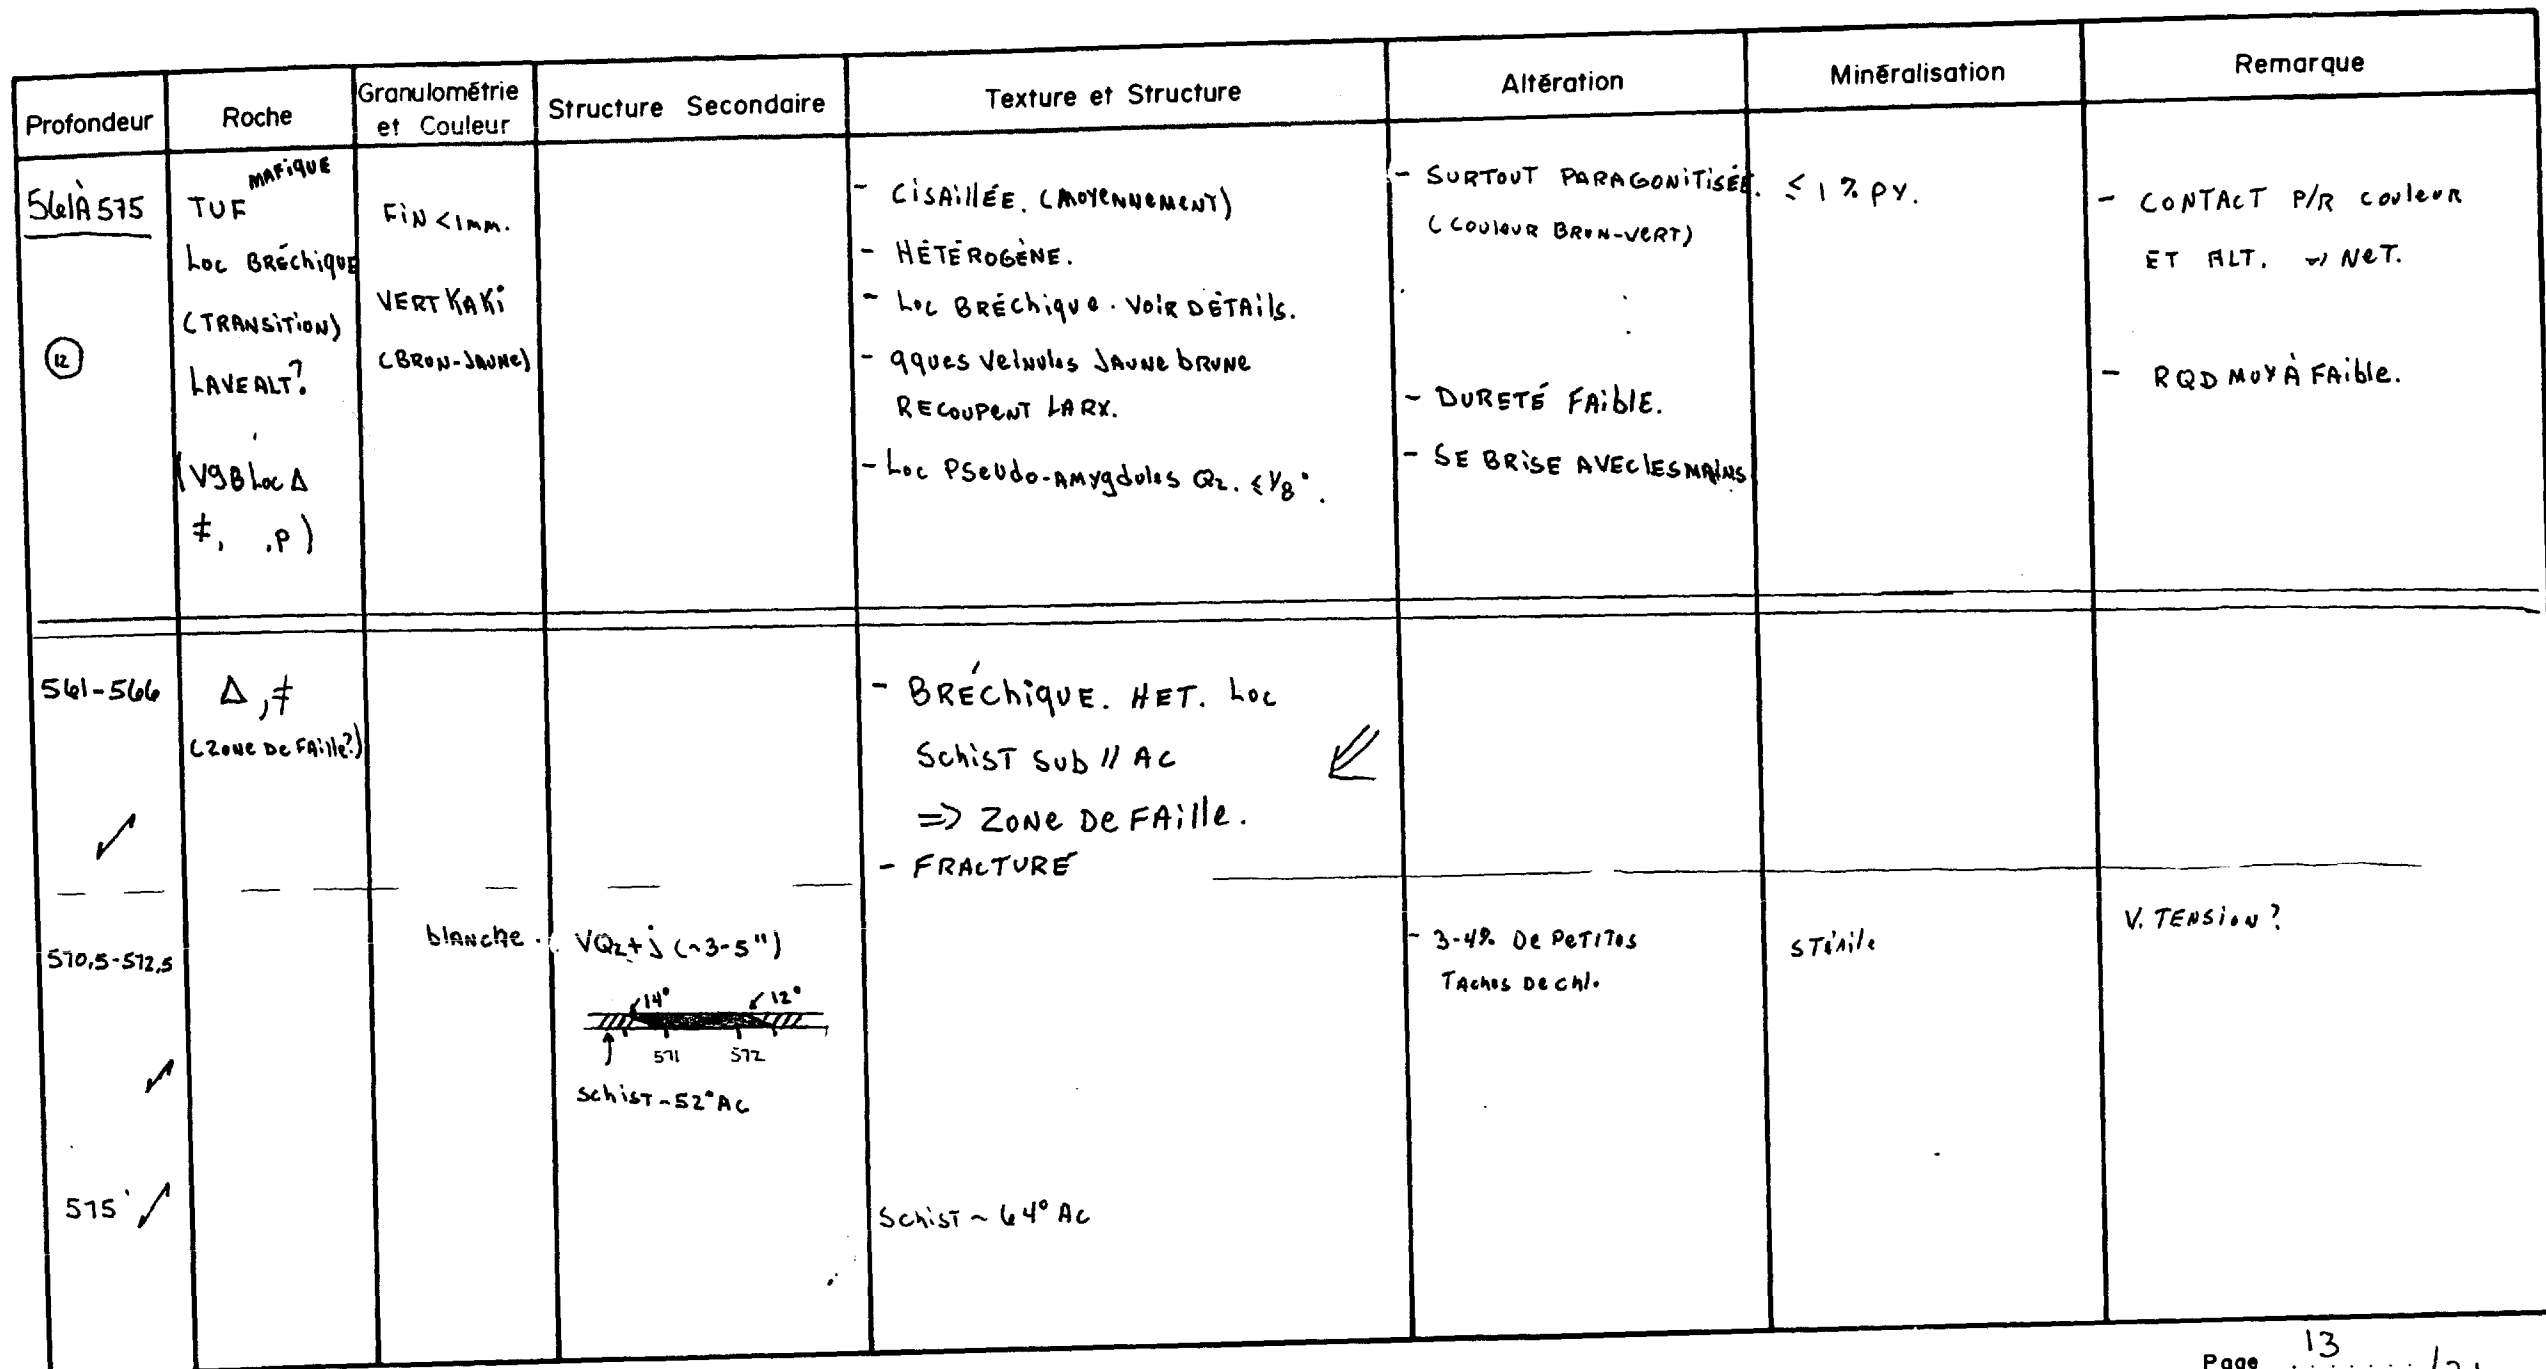 Profondeur
Roche
Granulométrie
et Couleur
Structure Secondaire
Texture et Structure
Altération
Minéralisation
Remarque
561À575
12
MAFIQUE
TUF
Loc BRÉChiqUE
(TRANSiTiON)
LAVE ALT?
(V9B Loc Δ
≠, .P)
FiN <1mm.
VERT KAKi
(BRUN-JAUNE)
- CiSAillÉE. (MOYENNEMENT)
- HÉTÉROGÈNE.
- Loc BRÉChique. VOIR DÉTAils.
- qques Veinules JAUNE bRUNE
RECOUPENT LA RX.
- Loc PSeudo-AMYgdules Qz. ≤ 1/8".
- SURTOUT PARAGONITISÉE.
(COULEUR BRUN-VERT)
- DURETÉ FAiblE.
- SE BRiSE AVEC lES MAiNS
≤ 1 % PY.
- CONTACT P/R couleur
ET ALT. => NeT.
- RQD MOY À FAible.
561-566
Δ, ≠
(ZONE De FAille?)
- BRÉChiqUE. HET. Loc
SchisT Sub // AC
=> ZONe De FAille.
- FRACTURÉ
570,5-572,5
blANche.
VQz+j (~3-5")
14° 12°
571 572
SchisT ~ 52° AC
- 3-4% De PeTiTes
TAches De Chl.
STérile
V. TENSioN?
575'
SchisT ~ 64° AC
Page 13